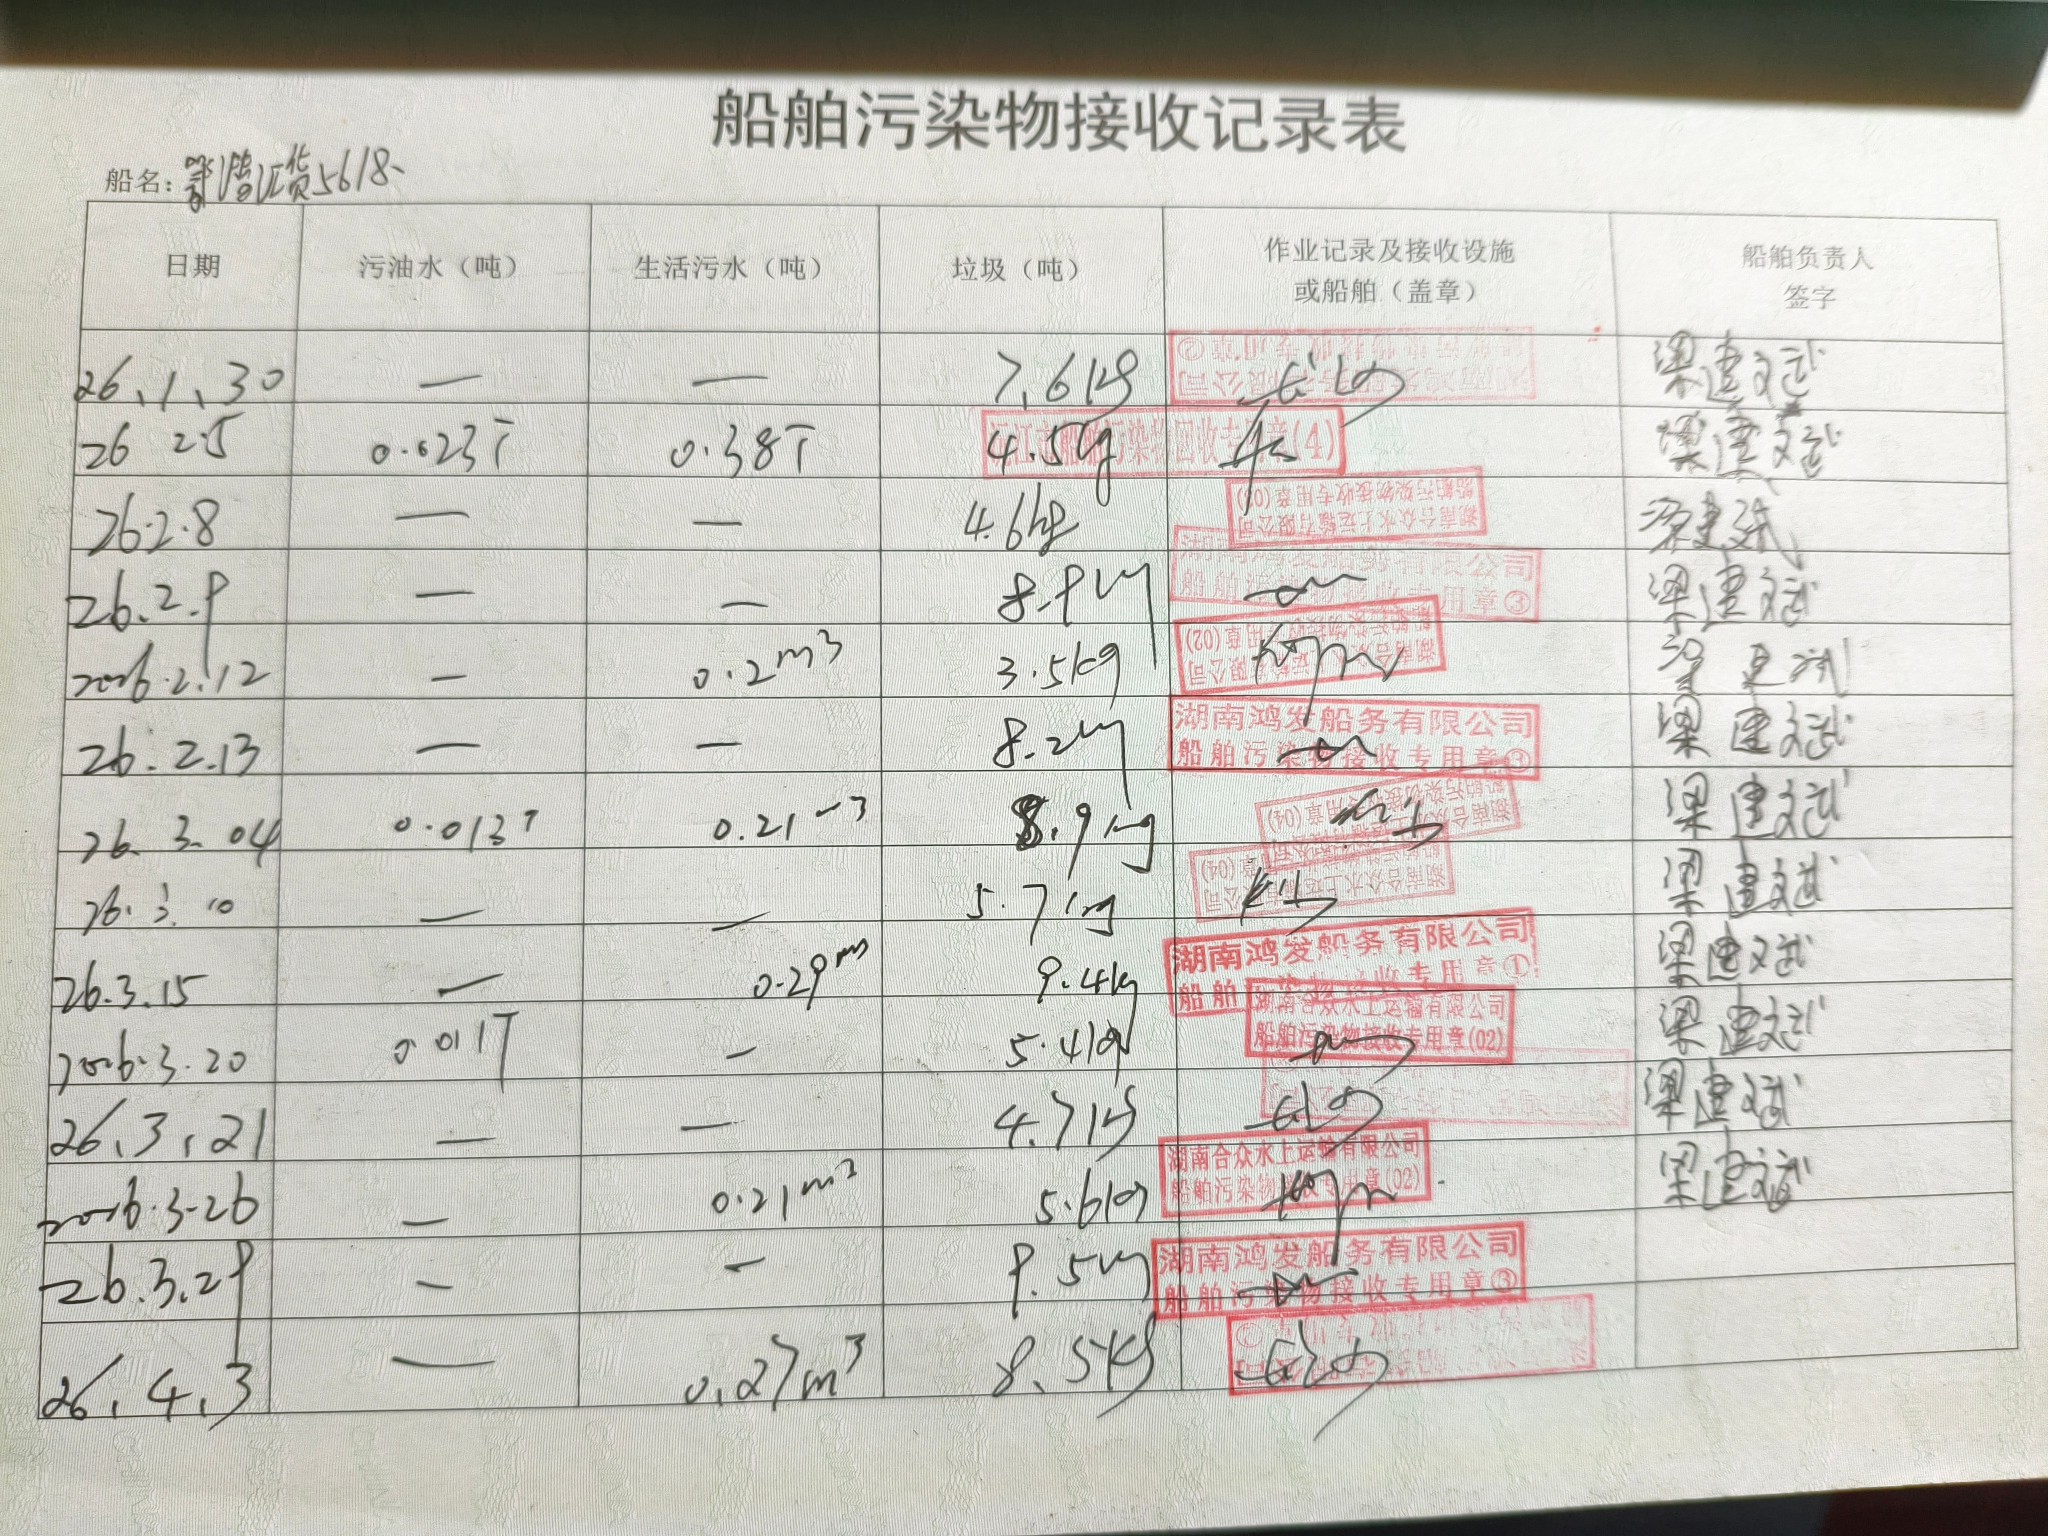 船舶污染物接收记录表
船名：货5618
日期 污油水（吨） 生活污水（吨） 垃圾（吨） 作业记录及接收设施或船舶（盖章） 船舶负责人签字
26.1.30 — — 7.6kg 梁建文武
26 2.5 0.023T 0.38T 4.5kg 船舶污染物回收专用章(4) 梁建文武
26.2.8 — — 4.6kg 湖南合众水上运输有限公司 船舶污染物接收专用章(03) 梁建文武
26.2.9 — — 8.9kg 船舶污染物接收专用章③ 梁建文武
2026.2.12 — 0.2m3 3.5kg 湖南合众水上运输有限公司 船舶污染物接收专用章(02)
26.2.13 — — 8.2kg 湖南鸿发船务有限公司 船舶污染物接收专用章 梁建文武
26.3.04 0.013T 0.21m3 8.9kg 湖南合众水上运输有限公司 船舶污染物接收专用章(04) 梁建文武
26.3.10 — — 5.7kg 湖南合众水上运输有限公司 (04) 梁建文武
26.3.15 — 0.29m 9.4kg 湖南鸿发船务有限公司 船舶污染物接收专用章① 梁建文武
2026.3.20 0.011T — 5.4kg 湖南合众水上运输有限公司 船舶污染物接收专用章(02) 梁建文武
26.3.21 — — 4.7kg 梁建文武
2026.3.26 — 0.21m3 5.6kg 湖南合众水上运输有限公司 船舶污染物接收专用章(02) 梁建文武
26.3.29 — — 9.5kg 湖南鸿发船务有限公司 船舶污染物接收专用章③
26.4.3 — 0.27m3 8.5kg